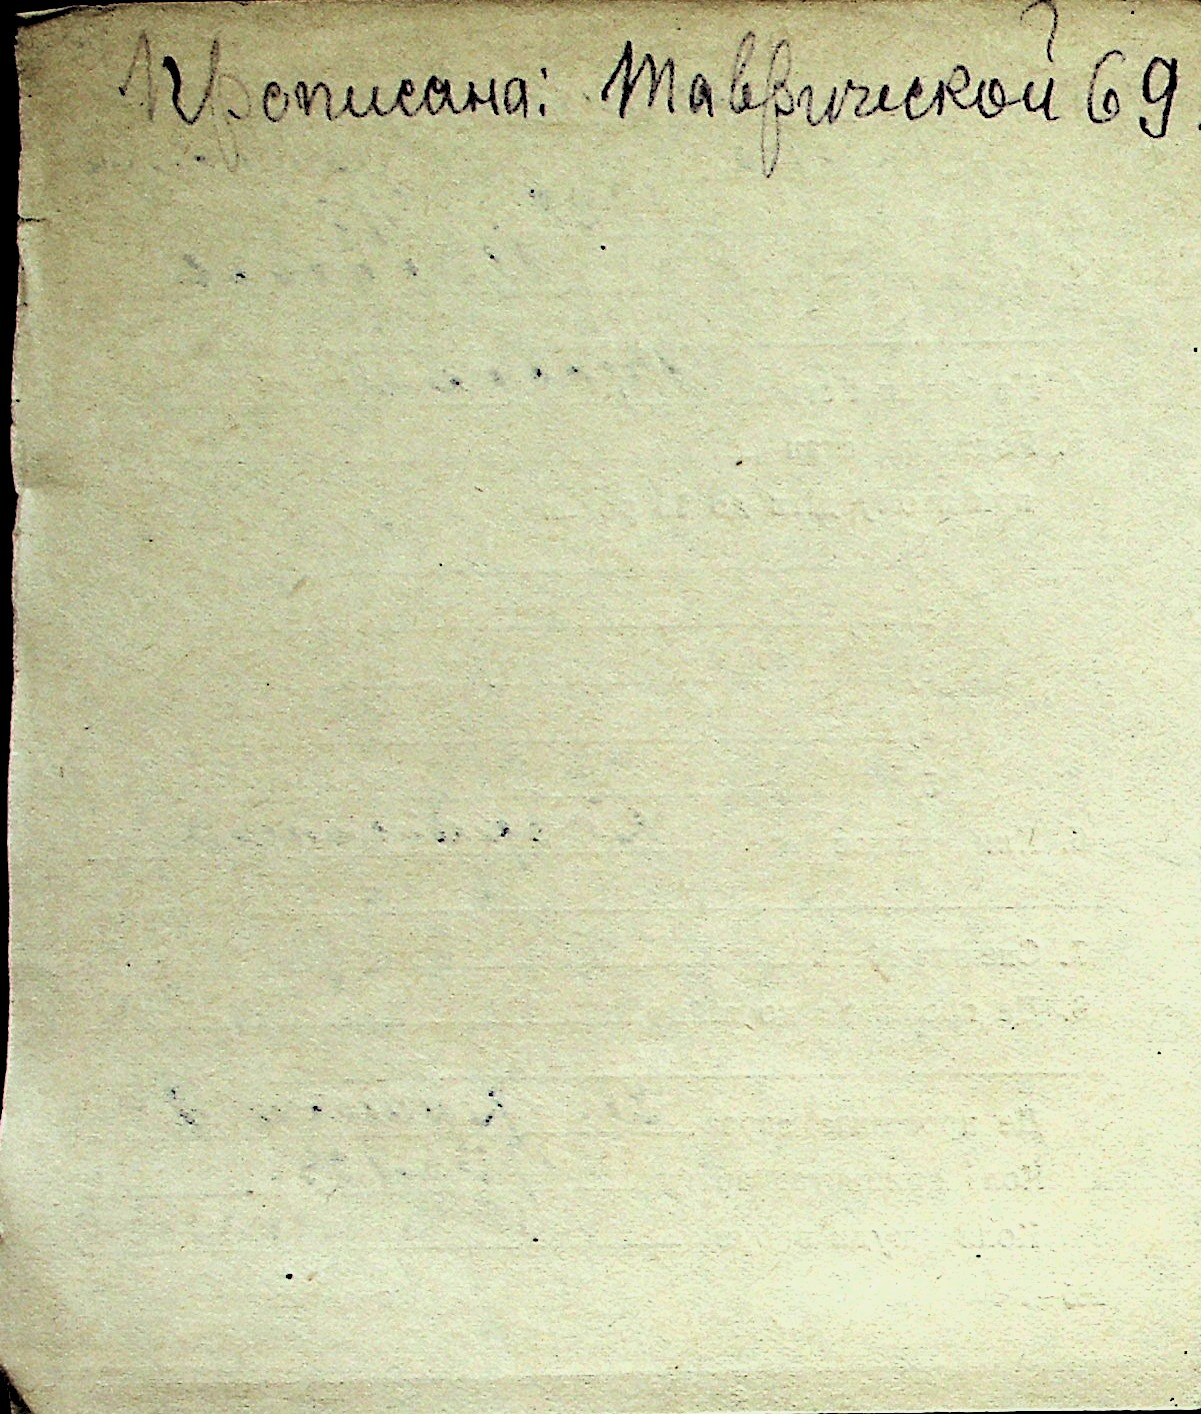 Прописана: Таврической 69.